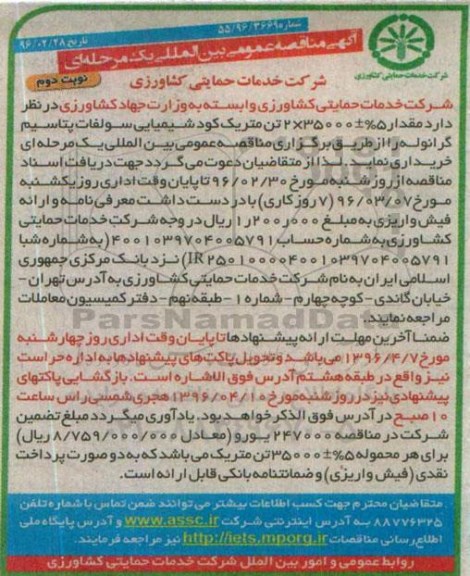 شماره ۵۵/۹۶/۳۶۶۹
تاریخ ۹۶/۰۲/۲۸
آگهی مناقصه عمومی بین المللی یک مرحله ای
نوبت دوم
شرکت خدمات حمایتی کشاورزی
شرکت خدمات حمایتی کشاورزی
شرکت خدمات حمایتی کشاورزی وابسته به وزارت جهاد کشاورزی در نظر
دارد مقدار ۵%±۳۵۰۰۰×۲ تن متریک کود شیمیایی سولفات پتاسیم
گرانوله را از طریق برگزاری مناقصه عمومی بین المللی یک مرحله ای
خریداری نماید. لذا از متقاضیان دعوت می گردد جهت دریافت اسناد
مناقصه از روز شنبه مورخ ۹۶/۰۲/۳۰ تا پایان وقت اداری روز یکشنبه
مورخ ۹۶/۰۳/۰۷ (۷ روز کاری) با در دست داشت معرفی نامه و ارائه
فیش واریزی به مبلغ ۱٫۲۰۰٫۰۰۰ ریال در وجه شرکت خدمات حمایتی
کشاورزی به شماره حساب ۴۰۰۱۰۳۹۷۰۴۰۰۵۷۹۱ (به شماره شبا
IR ۲۵۰۱۰۰۰۰۴۰۰۱۰۳۹۷۰۴۰۰۵۷۹۱) نزد بانک مرکزی جمهوری
اسلامی ایران به نام شرکت خدمات حمایتی کشاورزی به آدرس تهران -
خیابان گاندی - کوچه چهارم - شماره ۱ - طبقه نهم - دفتر کمیسیون معاملات
مراجعه نمایند.
ParsNamadData
ضمنا آخرین مهلت ارائه پیشنهادها تا پایان وقت اداری روز چهارشنبه
مورخ ۱۳۹۶/۴/۷ می باشد و تحویل پاکت های پیشنهادها به اداره حراست
نیز واقع در طبقه هشتم آدرس فوق الاشاره است. بازگشایی پاکتهای
پیشنهادی نیز در روز شنبه مورخ ۱۳۹۶/۰۴/۱۰ هجری شمسی راس ساعت
۱۰ صبح در آدرس فوق الذکر خواهد بود. یادآوری میگردد مبلغ تضمین
شرکت در مناقصه ۲۴۷۰۰۰ یورو (معادل ۸/۷۵۹/۰۰۰/۰۰۰ ریال)
برای هر محموله ۵%±۳۵۰۰۰ تن متریک می باشد که به دو صورت پرداخت
نقدی (فیش واریزی) و ضمانتنامه بانکی قابل ارائه است.
متقاضیان محترم جهت کسب اطلاعات بیشتر می توانند ضمن تماس با شماره تلفن
۸۸۷۷۶۳۲۵ به آدرس اینترنتی شرکت www.assc.ir و آدرس پایگاه ملی
اطلاع رسانی مناقصات http://iets.mporg.ir نیز مراجعه فرمایند.
روابط عمومی و امور بین الملل شرکت خدمات حمایتی کشاورزی